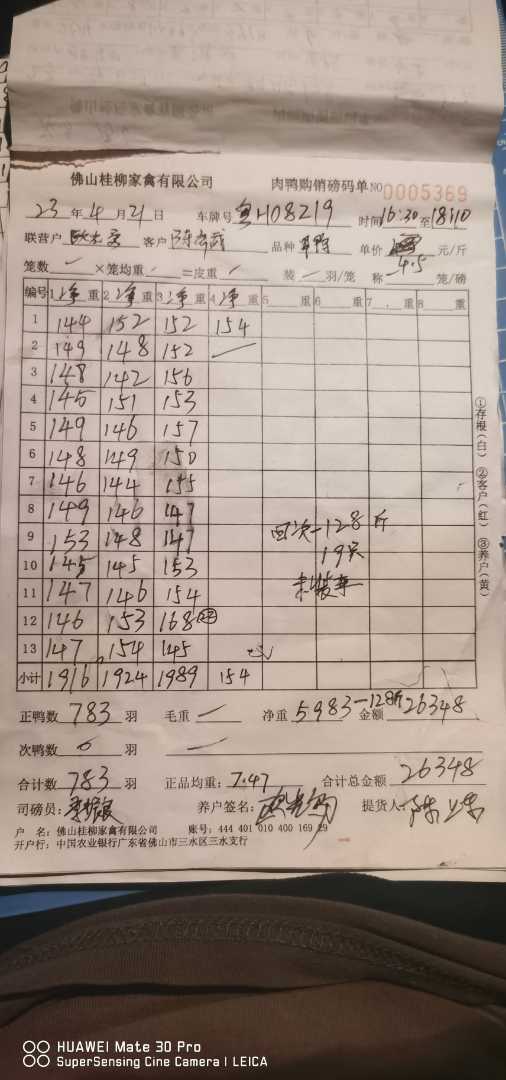 佛山桂柳家禽有限公司 肉鸭购销磅码单 NO 0005369
23 年 4 月 21 日 车牌号 粤H08219 时间 16:30 至 18:10
联营户 客户 品种 单价 4.5 元/斤
笼数 × 笼均重 = 皮重 装 羽/笼 称 笼/磅
编号 1 净 重 2 净 重 3 净 重 4 净 重 5 重 6 重 7 重 8 重
1 144 152 152 154
2 149 148 152
3 148 142 156
4 145 151 153
5 149 146 157
6 148 149 150
7 146 144 155
8 149 146 147
9 153 148 147 回次-128斤
10 145 145 153 19只
11 147 146 154 未装车
12 146 153 168
13 147 154 145
小计 1916 1924 1989 154
①存根(白) ②客户(红) ③养户(黄)
正鸭数 783 羽 毛重 净重 5983-128斤 金额 26348
次鸭数 羽
合计数 783 羽 正品均重: 7.47 合计总金额 26348
司磅员: 养户签名: 提货人:
户 名: 佛山桂柳家禽有限公司 账号: 444 401 010 400 169 29
开户行: 中国农业银行广东省佛山市三水区三水支行
HUAWEI Mate 30 Pro
SuperSensing Cine Camera | LEICA